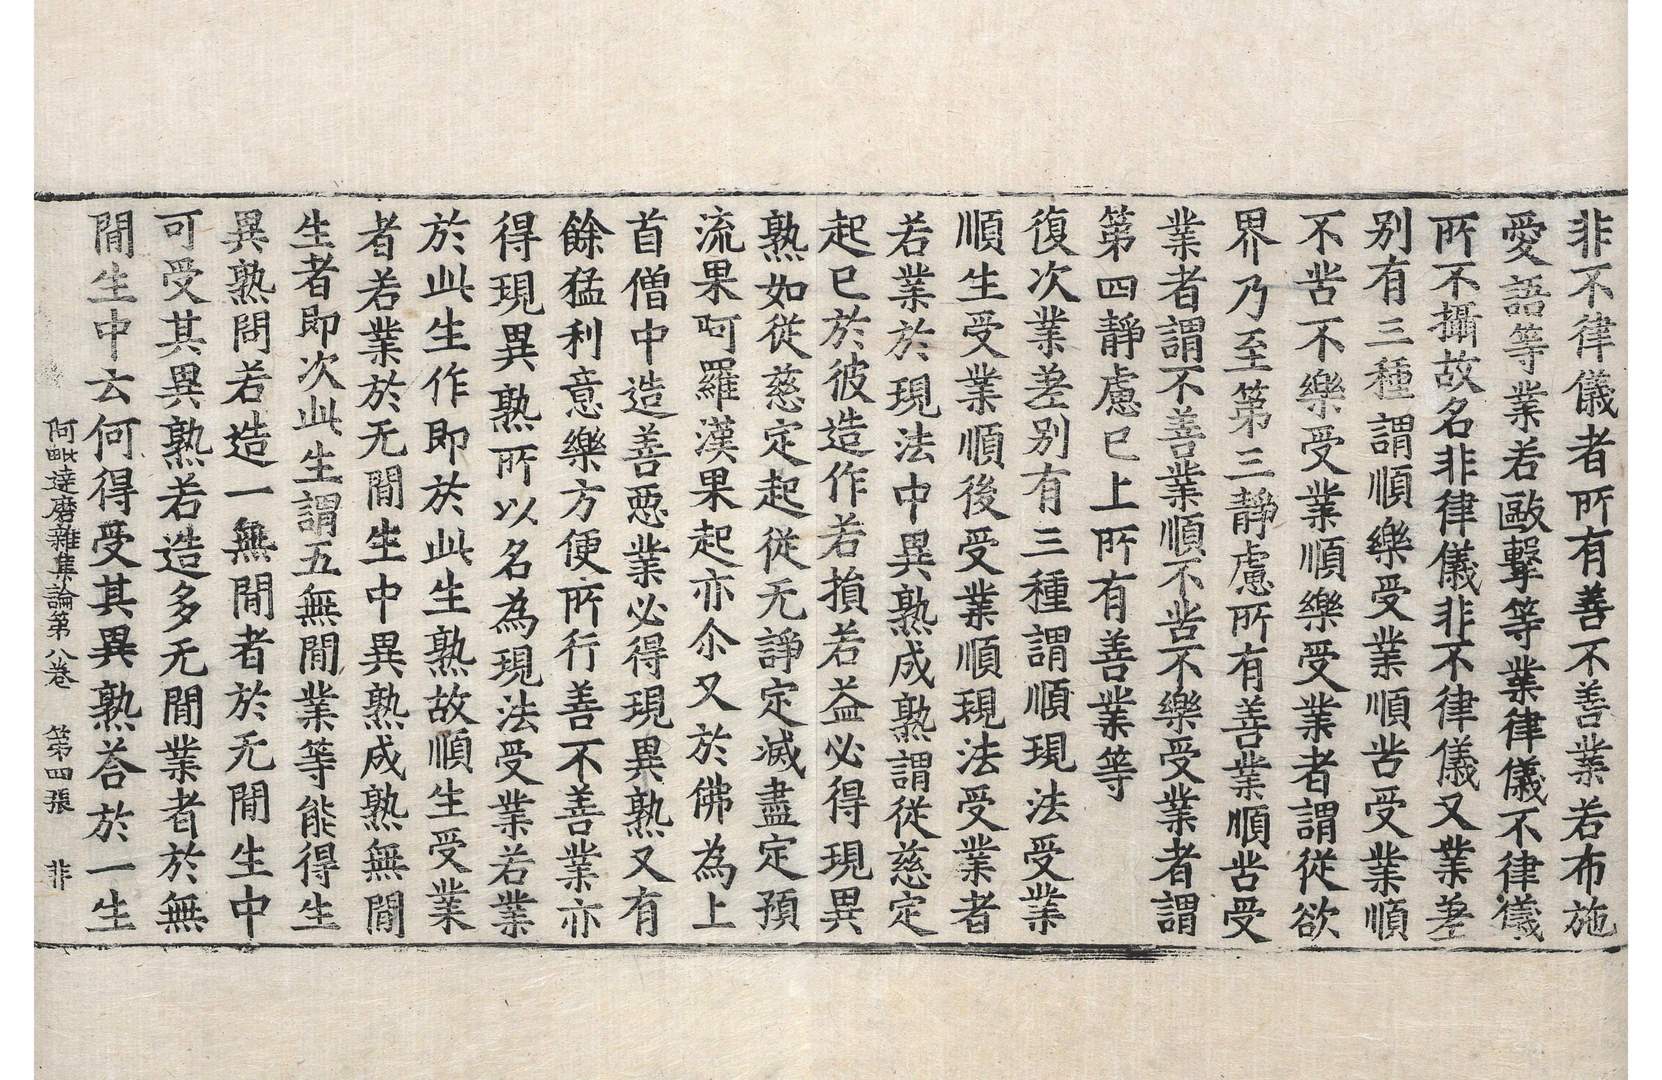 非不律儀者所有善不善業若布施
愛語等業若毆擊等業律儀不律儀
所不攝故名非律儀非不律儀又業差
别有三種謂順樂受業順苦受業順
不苦不樂受業順樂受業者謂從欲
界乃至第三靜慮所有善業順苦受
業者謂不善業順不苦不樂受業者謂
第四靜慮已上所有善業等
復次業差别有三種謂順現法受業
順生受業順後受業順現法受業者
若業於現法中異熟成熟謂從慈定
起已於彼造作若損若益必得現異
熟如從慈定起從无諍定滅盡定預
流果阿羅漢果起亦尒又於佛為上
首僧中造善惡業必得現異熟又有
餘猛利意樂方便所行善不善業亦
得現異熟所以名為現法受業若業
於此生作即於此生熟故順生受業
者若業於无間生中異熟成熟無間
生者即次此生謂五無間業等能得生
異熟問若造一無間者於无間生中
可受其異熟若造多无間業者於無
間生中云何得受其異熟荅於一生
阿毗達磨雜集論第八卷　第四張　非